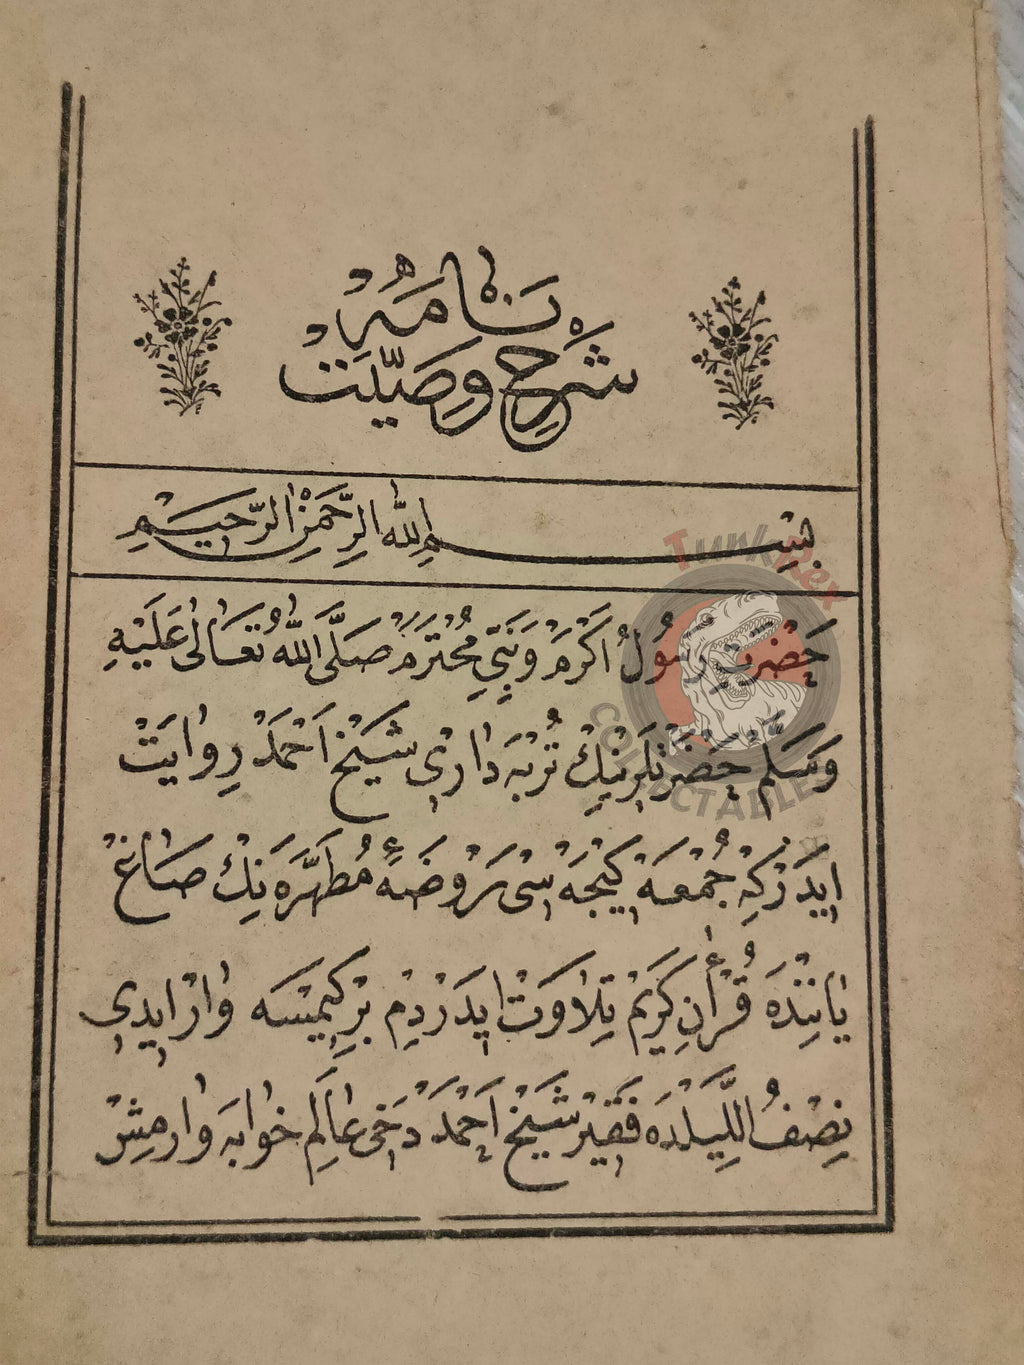 شرح وصيت
نامه
بسم الله الرحمن الرحيم
حَضْرتِ رَسُولُ اَكْرَمْ وَنَبِىِّ مُحْتَرَمْ صَلَّى اللّٰهُ تَعَالٰى عَلَيْهِ
وَسَلَّمْ حَضْرَتْلَرِينِڭ تُرْبَه دَارِى شَيْخ اَحْمَدْ رِوَايَتْ
اِيدَرْكِه جُمْعَه كِيجَه سِى رَوْضَهٔ مُطَهَّرَه نِڭ صَاغْ
يَانِنْدَه قُرْأٰنِ كَرِيمْ تِلَاوَتْ اِيدَرْدِمْ بِرْكِيمْسَه وَارْ اِيدِى
نِصْفُ اللَّيْلدَه فَقِيرْ شَيْخ اَحْمَدْ دَخِى عَالَمِ خوابَه وَارْمِشْ
Tunk Rex
COLLECTABLES